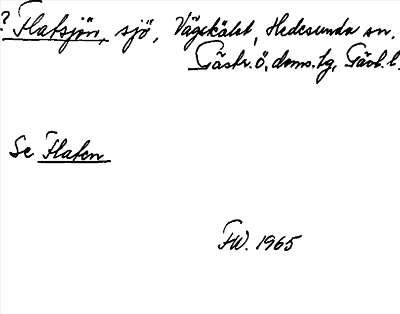 ? Flatsjön, sjö, Vägskälet, Hedesunda sn.
Gästr. Ö. doms. tg, Gävl. l.
Se Flaten
FW. 1965